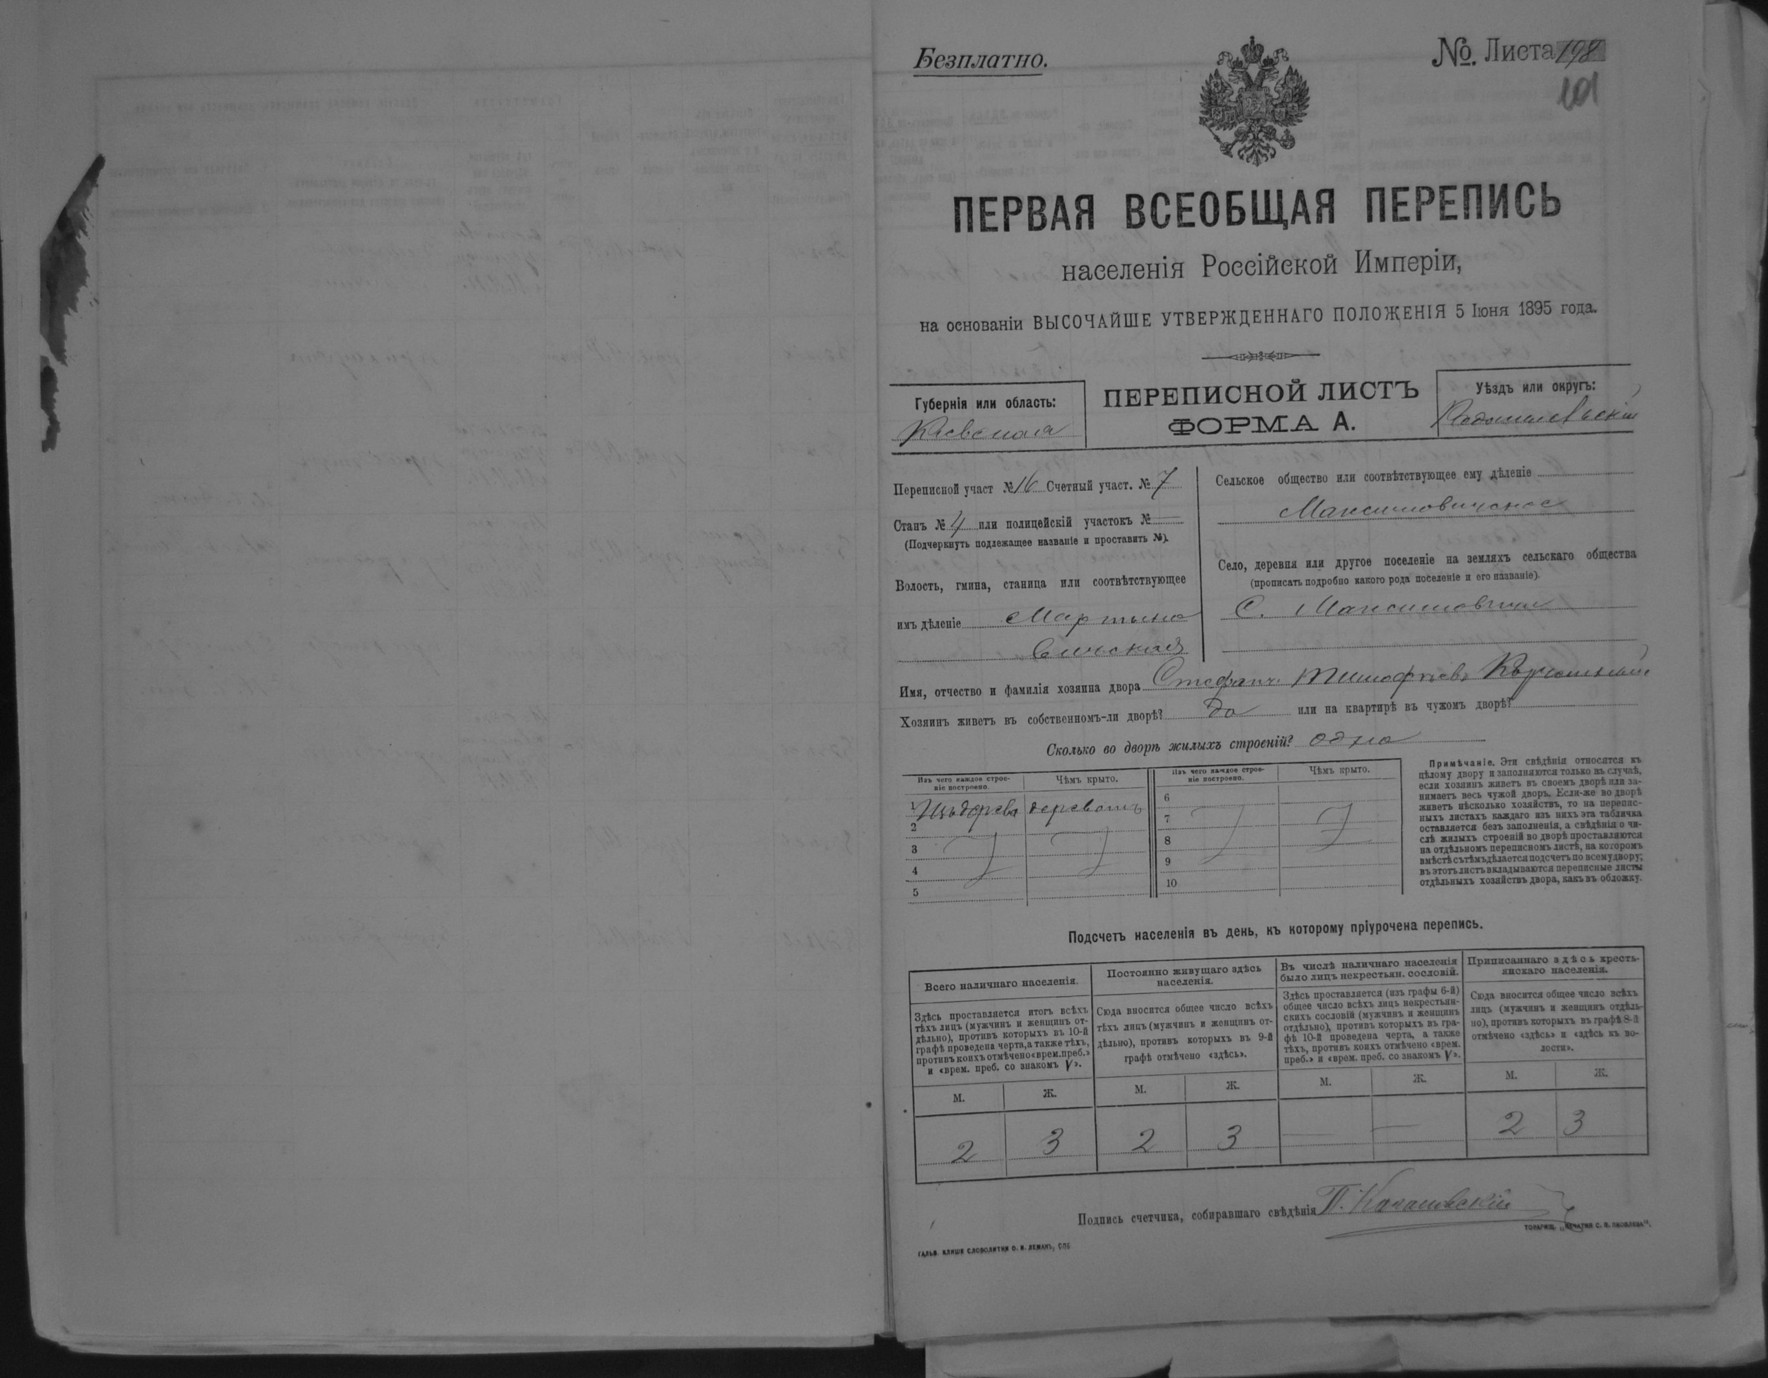 Безплатно.
№. Листа 198
101
ПЕРВАЯ ВСЕОБЩАЯ ПЕРЕПИСЬ
населенія Россійской Имперіи,
на основаніи ВЫСОЧАЙШЕ УТВЕРЖДЕННАГО ПОЛОЖЕНІЯ 5 Іюня 1895 года.
Губернія или область:
Кіевская
ПЕРЕПИСНОЙ ЛИСТЪ
ФОРМА А.
Уѣздъ или округъ:
Радомысльскій
Переписной участ № 16 Счетный участ. № 7
Станъ № 4 или полицейскій участокъ №
(Подчеркнуть подлежащее названіе и проставить №).
Волость, гмина, станица или соотвѣтствующее
имъ дѣленіе Мартыно
вичская
Сельское общество или соотвѣтствующее ему дѣленіе
Максимовичское
Село, деревня или другое поселеніе на земляхъ сельскаго общества
(прописать подробно какого рода поселеніе и его названіе)
С. Максимовичи
Имя, отчество и фамилія хозяина двора Стефанъ Тимофѣевъ
Хозяинъ живетъ въ собственномъ-ли дворѣ? Да или на квартирѣ въ чужомъ дворѣ?
Сколько во дворѣ жилыхъ строеній? одно
Изъ чего каждое строе-
ніе построено.
Чѣмъ крыто.
Изъ чего каждое строе-
ніе построено.
Чѣмъ крыто.
1 Изъ дерева деревомъ
2
3
4
5
6
7
8
9
10
Примѣчаніе. Эти свѣдѣнія относятся къ
цѣлому двору и заполняются только въ случаѣ,
если хозяинъ живетъ въ своемъ дворѣ или за-
нимаетъ весь чужой дворъ. Если-же во дворѣ
живетъ нѣсколько хозяйствъ, то на перепис-
ныхъ листахъ каждаго изъ нихъ эта табличка
оставляется безъ заполненія, а свѣдѣнія о чи-
слѣ жилыхъ строеній во дворѣ проставляются
на отдѣльномъ переписномъ листѣ, на которомъ
вмѣстѣ съ тѣмъ дѣлается подсчетъ по всему двору;
въ этотъ листъ вкладываются переписные листы
отдѣльныхъ хозяйствъ двора, какъ въ обложку.
Подсчетъ населенія въ день, къ которому пріурочена перепись.
Всего наличнаго населенія.
Здѣсь проставляется итогъ всѣхъ
тѣхъ лицъ (мужчинъ и женщинъ от-
дѣльно), противъ которыхъ въ 10-й
графѣ проведена черта, а также тѣхъ,
противъ коихъ отмѣчено «врем. преб.»
и «врем. преб. со знакомъ V».
Постоянно живущаго здѣсь
населенія.
Сюда вносится общее число всѣхъ
тѣхъ лицъ (мужчинъ и женщинъ от-
дѣльно), противъ которыхъ въ 9-й
графѣ отмѣчено «здѣсь».
Въ числѣ наличнаго населенія
было лицъ некрестьян. сословій.
Здѣсь проставляется (изъ графы 6-й)
общее число всѣхъ лицъ некрестьян-
скихъ сословій (мужчинъ и женщинъ
отдѣльно), противъ которыхъ въ гра-
фѣ 10-й проведена черта, а также
тѣхъ, противъ коихъ отмѣчено «врем.
преб.» и «врем. преб. со знакомъ V».
Приписаннаго здѣсь кресть-
янскаго населенія.
Сюда вносится общее число всѣхъ
лицъ (мужчинъ и женщинъ отдѣль-
но), противъ которыхъ въ графѣ 8-й
отмѣчено «здѣсь» и «здѣсь въ во-
лости».
М. Ж. М. Ж. М. Ж. М. Ж.
2 3 2 3 — — 2 3
Подпись счетчика, собиравшаго свѣдѣнія
ГАЛЬВ. КЛИШЕ СЛОВОЛИТНИ О. И. ЛЕМАНЪ, СПБ
ТОВАРИЩ. „ПЕЧАТНИ С. П. ЯКОВЛЕВА“.